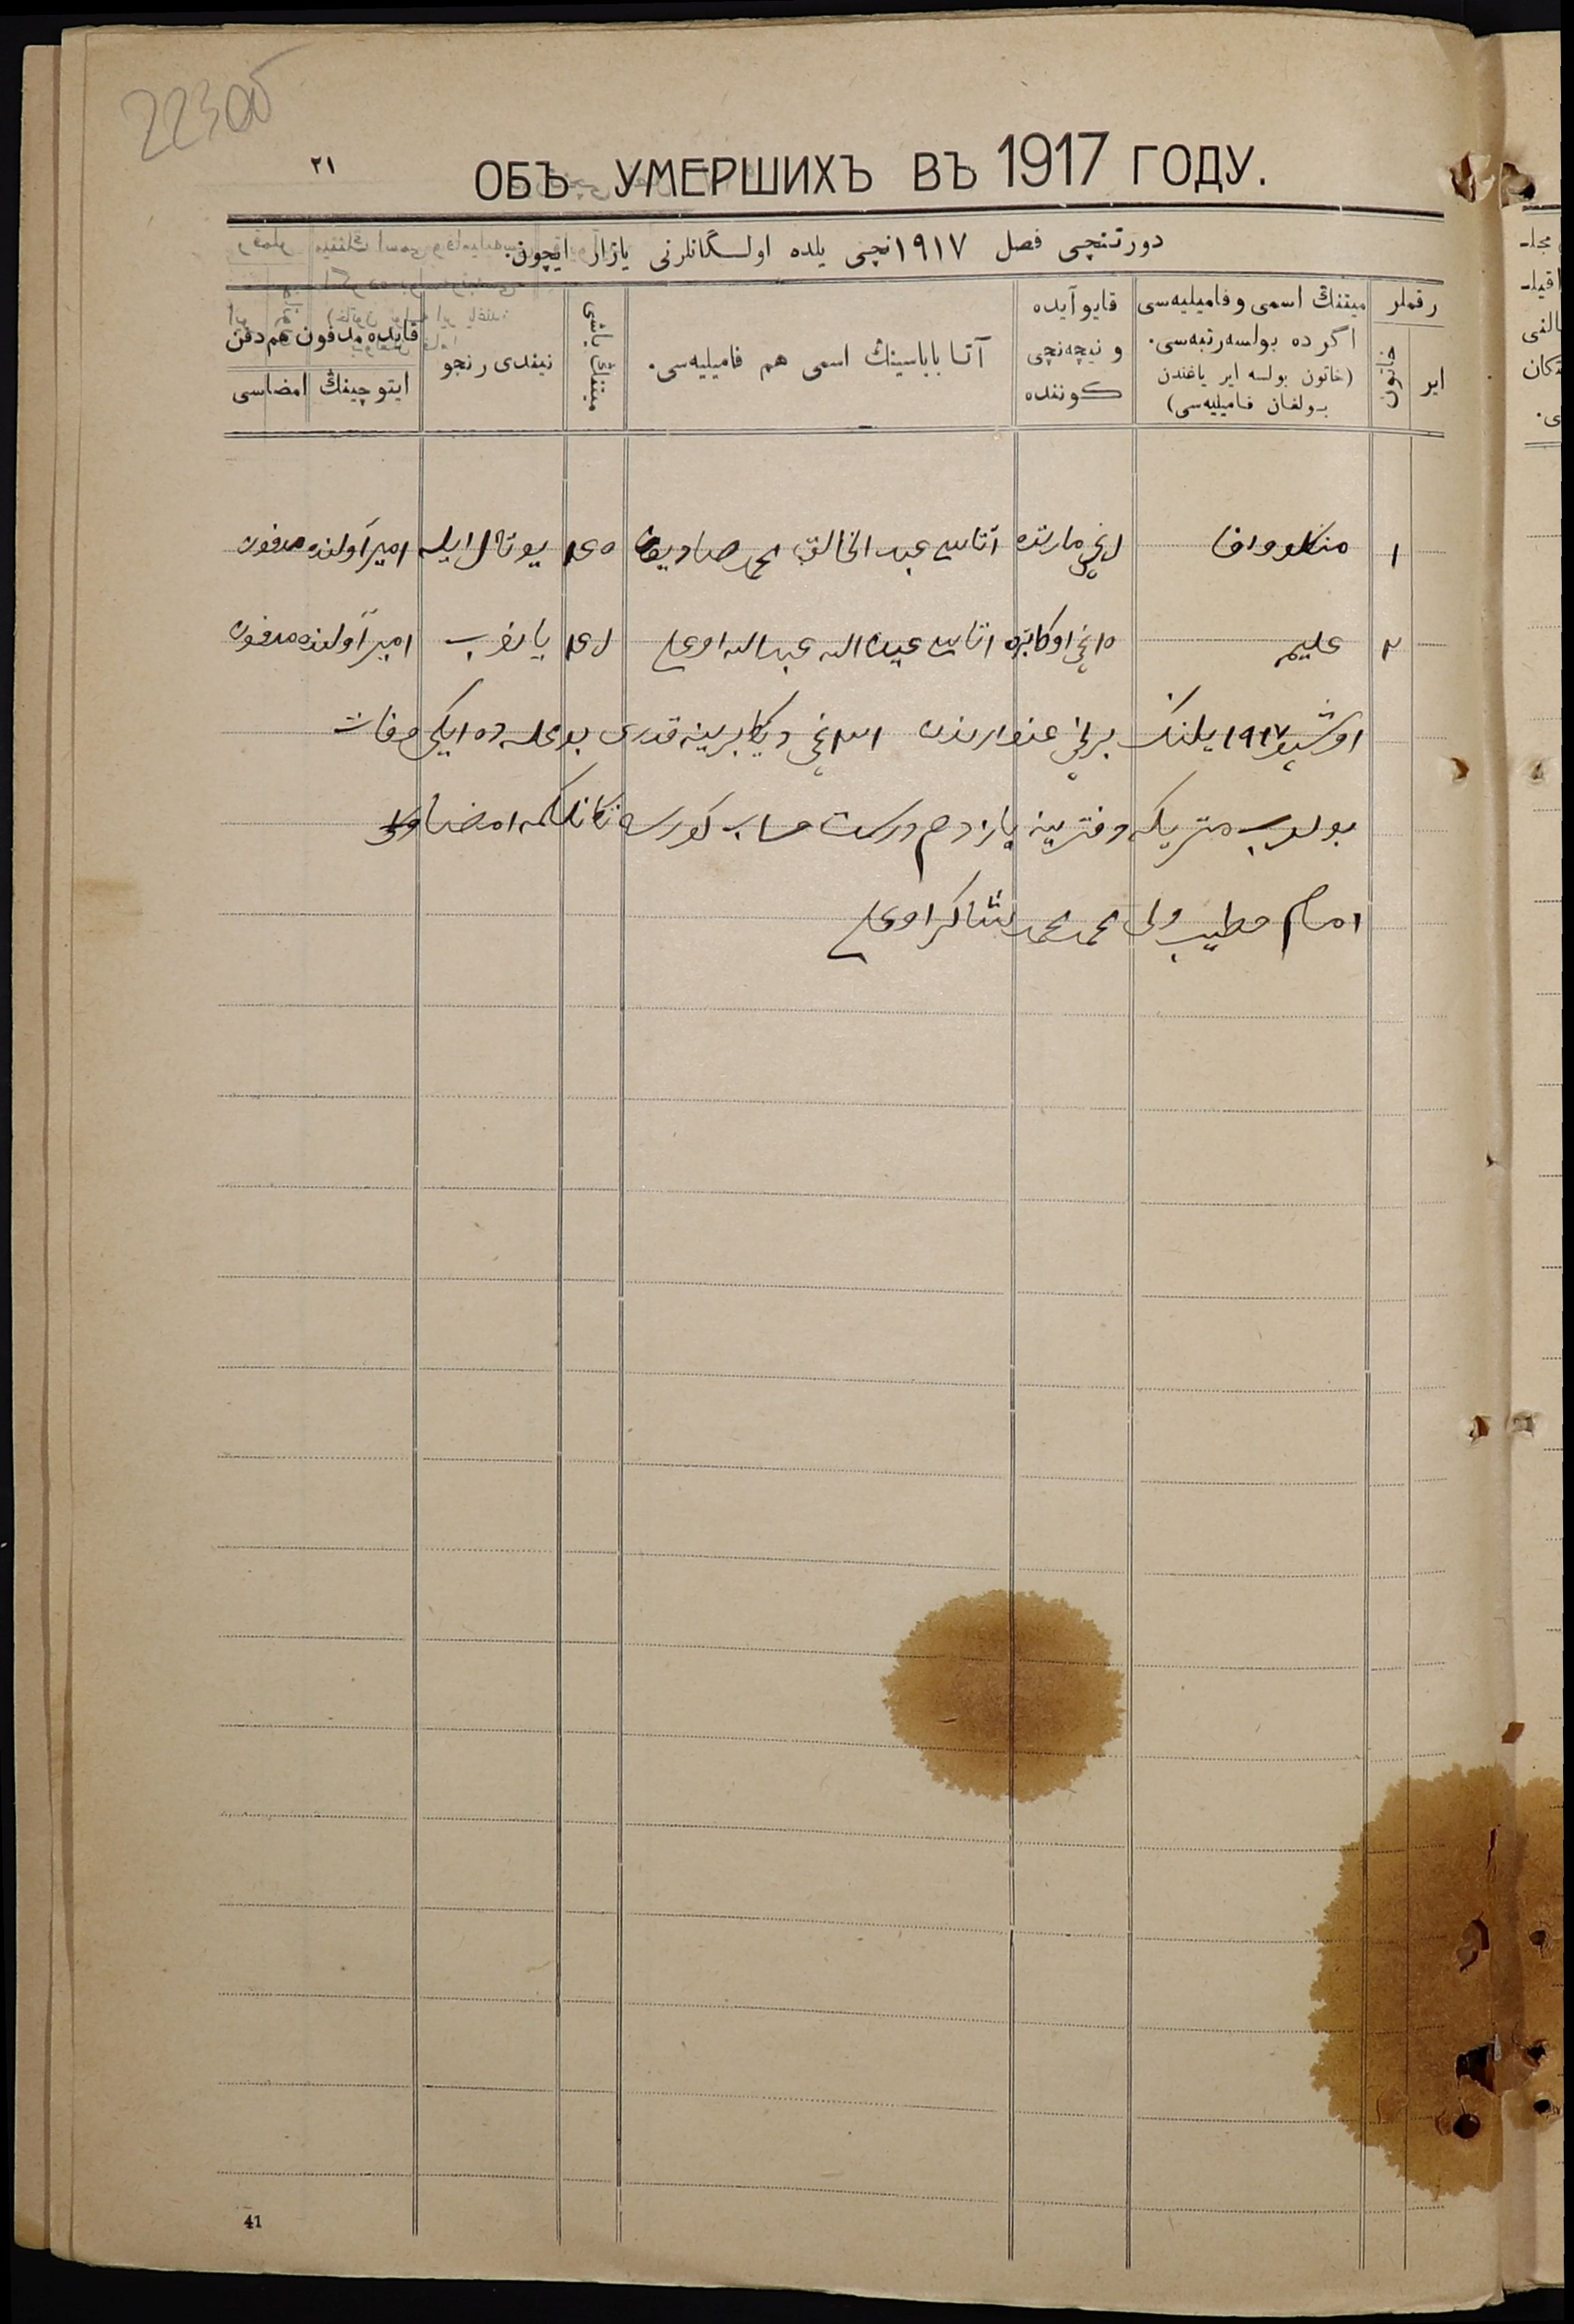 22300б
٢١
ОБЪ УМЕРШИХЪ ВЪ 1917 ГОДУ.
دورتنچی فصل ١٩١٧نچی یلده اولـگانلرنی یازار ایچون.
رقملر
ایر
خاتون
میتنڭ اسمی و فامیلیەسی
اگر ده بولسه رتبەسی.
(خاتون بولسه ایر یاغندن
بولغان فامیلیەسی)
قایو آیده
و نیچەنچی
کوننده
آتا باباسینڭ اسمی هم فامیلیەسی.
میتنڭ یاشی
نیندی رنجو
قایده مدفون هم دفن
ایتوچینڭ امضاسی
١ مارتده آتاسی عبد الخالق محمد صادیق یوتال ایله امیر آولنده مدفون
٢ علیم اوکتابرده آتاسی عبد الله امیر آولنده مدفون
١٩١٧ یلنڭ برنچی غنوارندن ٣١نچی دیکابرینه قدر بو محله ده ایکی وفات
بولوب متریکه دفترینه یازدم درست حساب
امام خطیب ولی محمد محمد شاکر اوغلی
41